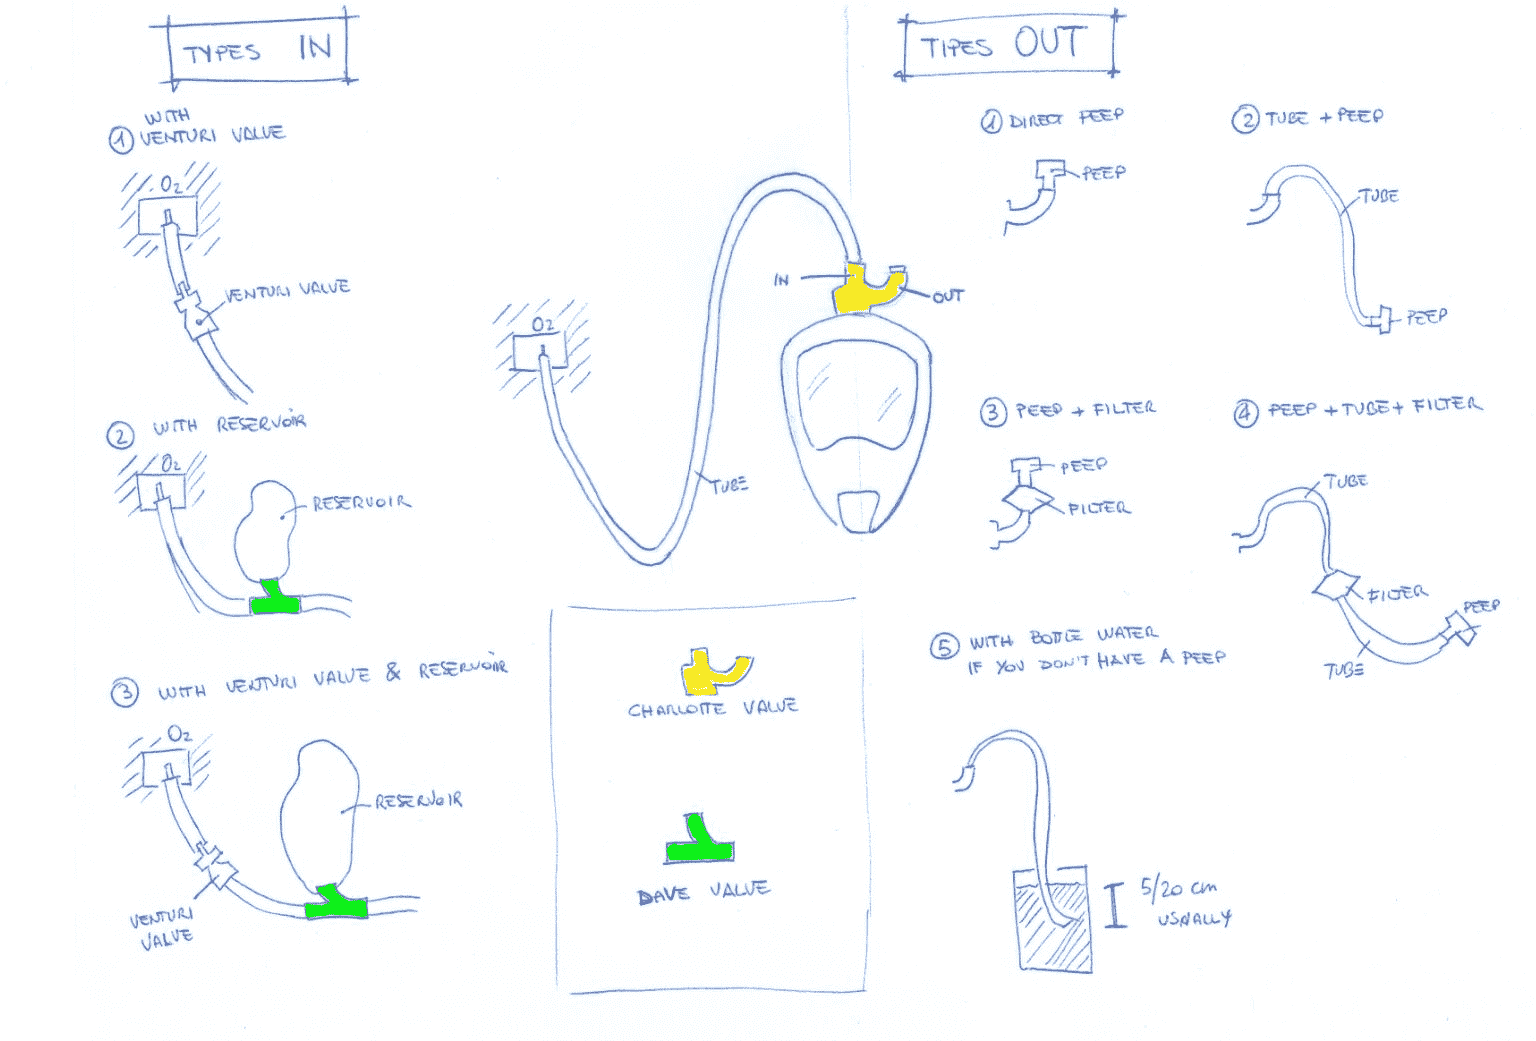 TYPES IN
1 WITH
VENTURI VALVE
O2
VENTURI VALVE
2 WITH RESERVOIR
O2
RESERVOIR
3 WITH VENTURI VALVE & RESERVOIR
O2
RESERVOIR
VENTURI
VALVE
O2
TUBE
IN
OUT
CHARLOTTE VALVE
DAVE VALVE
TIPES OUT
1 DIRECT PEEP
PEEP
2 TUBE + PEEP
TUBE
PEEP
3 PEEP + FILTER
PEEP
FILTER
4 PEEP + TUBE + FILTER
TUBE
FILTER
PEEP
TUBE
5 WITH BOTTLE WATER
IF YOU DON'T HAVE A PEEP
5/20 cm
USUALLY